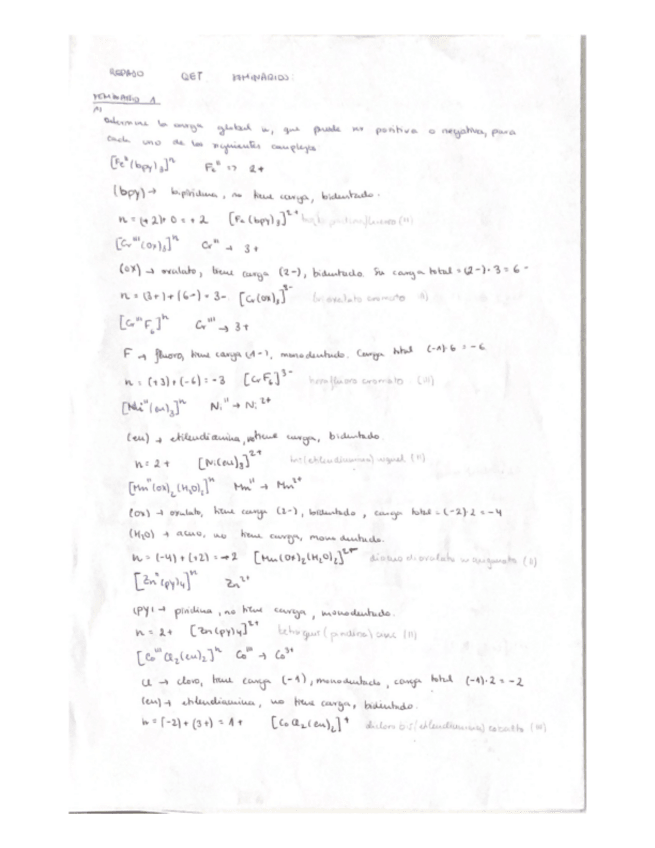 REPASO QET SEMINARIOS:
SEMINARIO 1
Determine la carga global n, que puede ser positiva o negativa, para
cada uno de los siguientes complejos
[Feᴵᴵ(bpy)₃]ⁿ Feᴵᴵ => 2+
(bpy) → bipiridina, no tiene carga, bidentado.
n = (+2)+0 = +2 [Fe(bpy)₃]²⁺ (II)
[Crᴵᴵᴵ(ox)₃]ⁿ Crᴵᴵᴵ → 3+
(ox) → oxalato, tiene carga (2-), bidentado. Su carga total = (2-)·3 = 6-
n = (3+)+(6-) = 3- [Cr(ox)₃]³⁻ trioxalato cromato
[Crᴵᴵᴵ F₆]ⁿ Crᴵᴵᴵ → 3+
F → fluoro, tiene carga (1-), monodentado. Carga total (-1)·6 = -6
n = (+3)+(-6) = -3 [CrF₆]³⁻ hexafluoro cromato (III)
[Niᴵᴵ(en)₃]ⁿ Niᴵᴵ → Ni²⁺
(en) → etilendiamina, no tiene carga, bidentado
n = 2+ [Ni(en)₃]²⁺ (etilendiamina) niquel (II)
[Mnᴵᴵ(ox)₂(H₂O)₂]ⁿ Mnᴵᴵ → Mn²⁺
(ox) → oxalato, tiene carga (2-), bidentado, carga total = (-2)·2 = -4
(H₂O) → acuo, no tiene carga, monodentado.
n = (-4)+(+2) = -2 [Mn(ox)₂(H₂O)₂] diacuo dioxalato (II)
[Znᴵᴵ(py)₄]ⁿ Zn²⁺
(py) → piridina, no tiene carga, monodentado.
n = 2+ [Zn(py)₄]²⁺ (piridina) cinc (II)
[Coᴵᴵᴵ Cl₂(en)₂]ⁿ Coᴵᴵᴵ → Co³⁺
Cl → cloro, tiene carga (-1), monodentado, carga total (-1)·2 = -2
(en) → etilendiamina, no tiene carga, bidentado.
n = (-2)+(3+) = 1+ [CoCl₂(en)₂]⁺ dicloro bis(etilendiamina) cobalto (III)